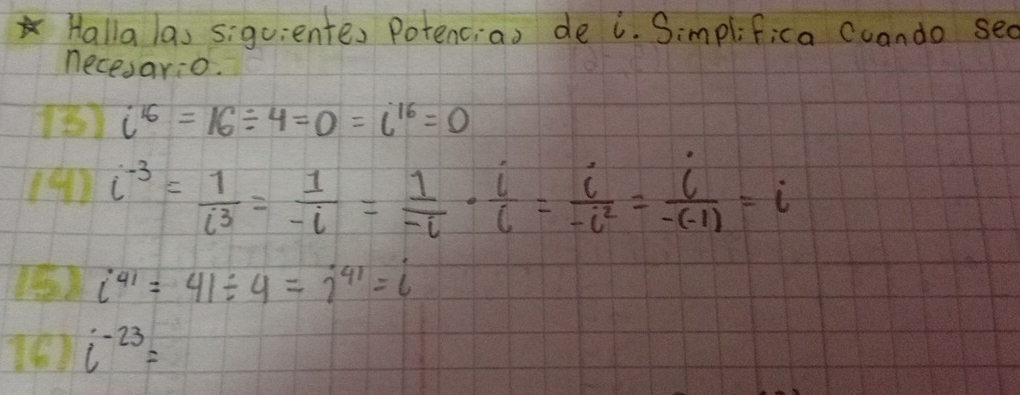 * Halla las siguientes Potencias de i. Simplifica Cuando sea
necesario.
13) i¹⁶ = 16 ÷ 4 = 0 = i¹⁶ = 0
14) i⁻³ = 1/i³ = 1/-i = 1/-i · i/i = i/-i² = i/-(-1) = i
15) i⁴¹ = 41 ÷ 4 = i⁴¹ = i
16) i⁻²³ =